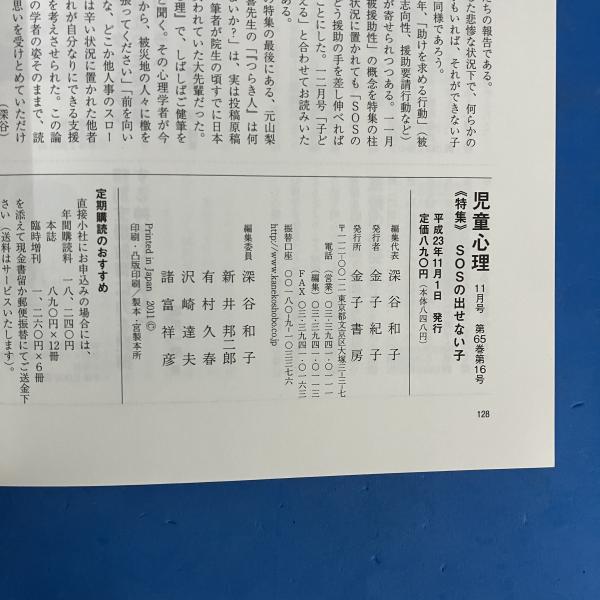 ちの報告である。
た悲惨な状況下で、何らかの
もいれば、それができない子
同様であろう。
年、「助けを求める行動」（被
志向性、援助要請行動など）
が寄せられつつある。一一月
被援助性」の概念を特集の柱
状況に置かれても「SOSの
どう援助の手を差し伸べれば
ことにした。一二月号「子ど
える」と合わせてお読みいた
ある。
の特集の最後にある、元山梨
喬先生の「「つらき人」は何
ないか？」は、実は投稿原稿
筆者が院生の頃すでに日本
われていた大先輩だった。
理』で、しばしばご健筆を
と聞く。その心理学者が今
から、被災地の人々に檄を
張ってください」「前を向い
な、どこか他人事のスロー
は辛い状況に置かれた他者
れが自分なりにできる支援
を考えさせられた。この論
の学者の姿そのままで、読
思いを受けとめていただけ
（深谷）
児童心理 11月号 第65巻第16号
《特集》 SOSの出せない子
平成23年11月1日 発行
定価八九〇円（本体八四八円）
編集代表 深谷和子
発行者 金子紀子
発行所 金子書房
〒一一二-〇〇一二 東京都文京区大塚三-三-七
電話 （営業）〇三-三九四一-〇一一一
（編集）〇三-三九四一-〇一一二
FAX 〇三-三九四一-〇一六三
振替口座 〇〇一八〇-九-一〇三三七六
http://www.kanekoshobo.co.jp
編集委員 深谷和子
新井邦二郎
有村久春
沢崎達夫
諸富祥彦
Printed in Japan 2011 ©
印刷・凸版印刷／製本・宮製本所
定期購読のおすすめ
直接小社にお申込みの場合には、
年間購読料 一八、二四〇円
本誌 八九〇円×12冊
臨時増刊 一、二六〇円×6冊
を添えて現金書留か郵便振替にてご送金下
さい（送料はサービスいたします）。
128